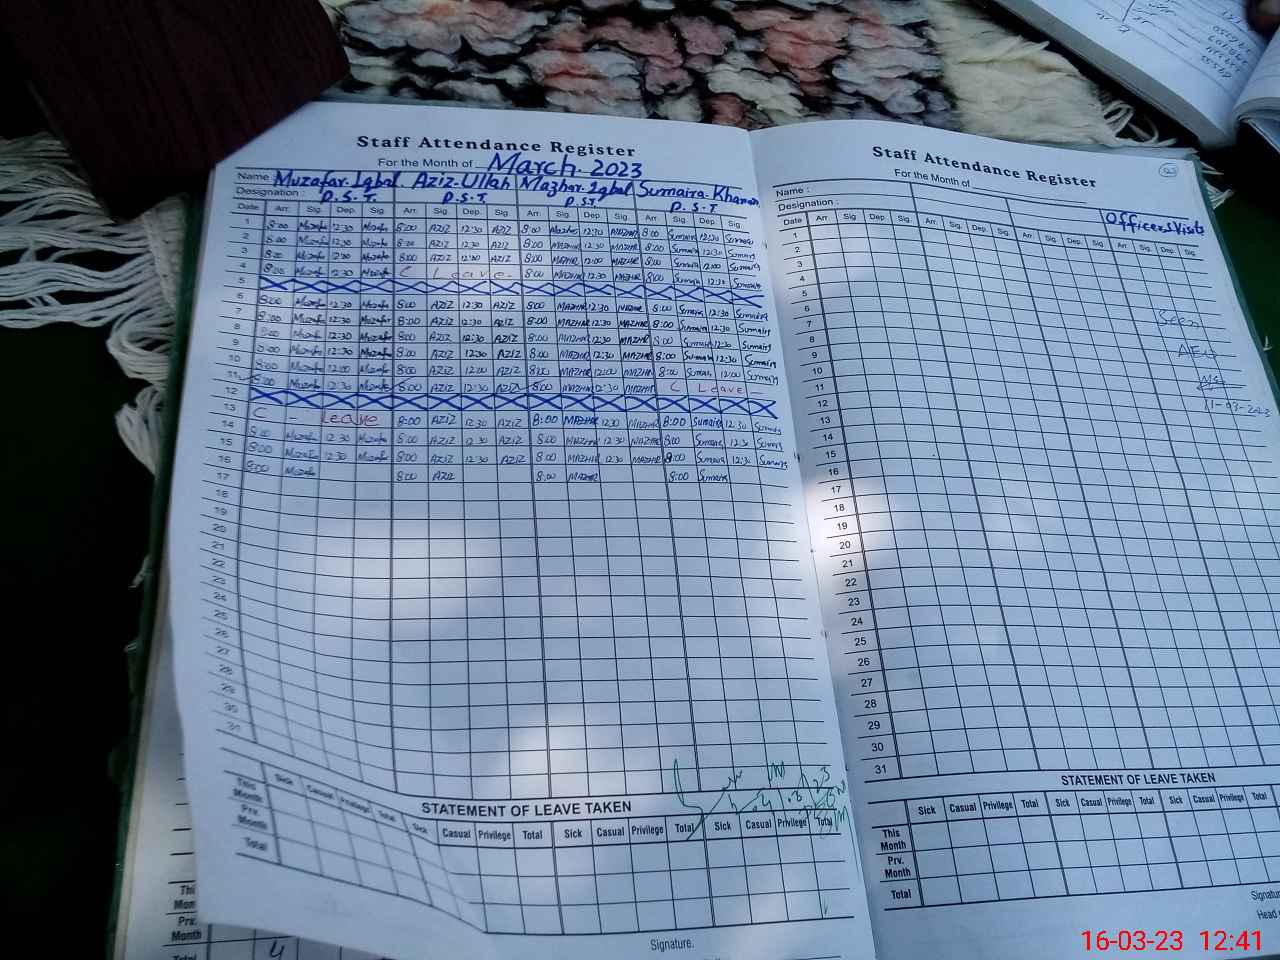 Staff Attendance Register
For the Month of March. 2023
Name Muzafar.Iqbal. Aziz-Ullah Mazhar.Iqbal Sumaira.Khanam
Designation : P.S.T. P.S.T. P.S.T. P.S.T
Date Arr. Sig. Dep. Sig. Arr. Sig. Dep. Sig. Arr. Sig. Dep. Sig. Arr. Sig. Dep. Sig.
1 8:00 Muzafar 12:30 Muzafar 8:00 AZIZ 12:30 AZIZ 8:00 Mazhar 12:30 MAZHR 8:00 Sumaira 12:30 Sumaira
2 8:00 Muzafar 12:30 Muzafar 8:00 AZIZ 12:30 AZIZ 8:00 MAZHR 12:30 MAZHR 8:00 Sumaira 12:30 Sumaira
3 8:00 Muzafar 12:30 Muzafar 8:00 AZIZ 12:00 AZIZ 8:00 MAZHR 12:00 MAZHR 8:00 Sumaira 12:00 Sumaira
4 8:00 Muzafar 12:30 Muzafar C Leave - 8:00 MAZHR 12:30 MAZHR 8:00 Sumaira 12:30 Sumaira
5
6 8:00 Muzafar 12:30 Muzafar 8:00 AZIZ 12:30 AZIZ 8:00 MAZHR 12:30 MAZHR 8:00 Sumaira 12:30 Sumaira
7 8:00 Muzafar 12:30 Muzafar 8:00 AZIZ 12:30 AZIZ 8:00 MAZHR 12:30 MAZHR 8:00 Sumaira 12:30 Sumaira
8 8:00 Muzafar 12:30 Muzafar 8:00 AZIZ 12:30 AZIZ 8:00 MAZHR 12:30 MAZHR 8:00 Sumaira 12:30 Sumaira
9 8:00 Muzafar 12:30 Muzafar 8:00 AZIZ 12:30 AZIZ 8:00 MAZHR 12:30 MAZHR 8:00 Sumaira 12:30 Sumaira
10 8:00 Muzafar 12:00 Muzafar 8:00 AZIZ 12:00 AZIZ 8:00 MAZHR 12:00 MAZHR 8:00 Sumaira 12:00 Sumaira
11 8:00 Muzafar 12:30 Muzafar 8:00 AZIZ 12:30 AZIZ 8:00 MAZHR 12:30 MAZHR C Leave -
12
13 C - Leave 8:00 AZIZ 12:30 AZIZ 8:00 MAZHR 12:30 MAZHR 8:00 Sumaira 12:30 Sumaira
14 8:00 Muzafar 12:30 Muzafar 8:00 AZIZ 12:30 AZIZ 8:00 MAZHR 12:30 MAZHR 8:00 Sumaira 12:30 Sumaira
15 8:00 Muzafar 12:30 Muzafar 8:00 AZIZ 12:30 AZIZ 8:00 MAZHR 12:30 MAZHR 8:00 Sumaira 12:30 Sumaira
16 8:00 Muzafar 8:00 AZIZ 8:00 MAZHR 8:00 Sumaira
17
18
19
20
21
22
23
24
25
26
27
28
29
30
31
STATEMENT OF LEAVE TAKEN
Sick Casual Privilege Total Sick Casual Privilege Total Sick Casual Privilege Total Sick Casual Privilege Total
This Month
Prv. Month
Total
Signature.
This Month
Prv. Month
Total 4
Staff Attendance Register
For the Month of
Name :
Designation :
Officers Visits
Date Arr. Sig. Dep. Sig. Arr. Sig. Dep. Sig. Arr. Sig. Dep. Sig. Arr. Sig. Dep. Sig.
1
2
3
4
5
6
7 Seen
8
9 AEO
10
11
12 11-03-2023
13
14
15
16
17
18
19
20
21
22
23
24
25
26
27
28
29
30
31
STATEMENT OF LEAVE TAKEN
Sick Casual Privilege Total Sick Casual Privilege Total Sick Casual Privilege Total
This Month
Prv. Month
Total
16-03-23 12:41